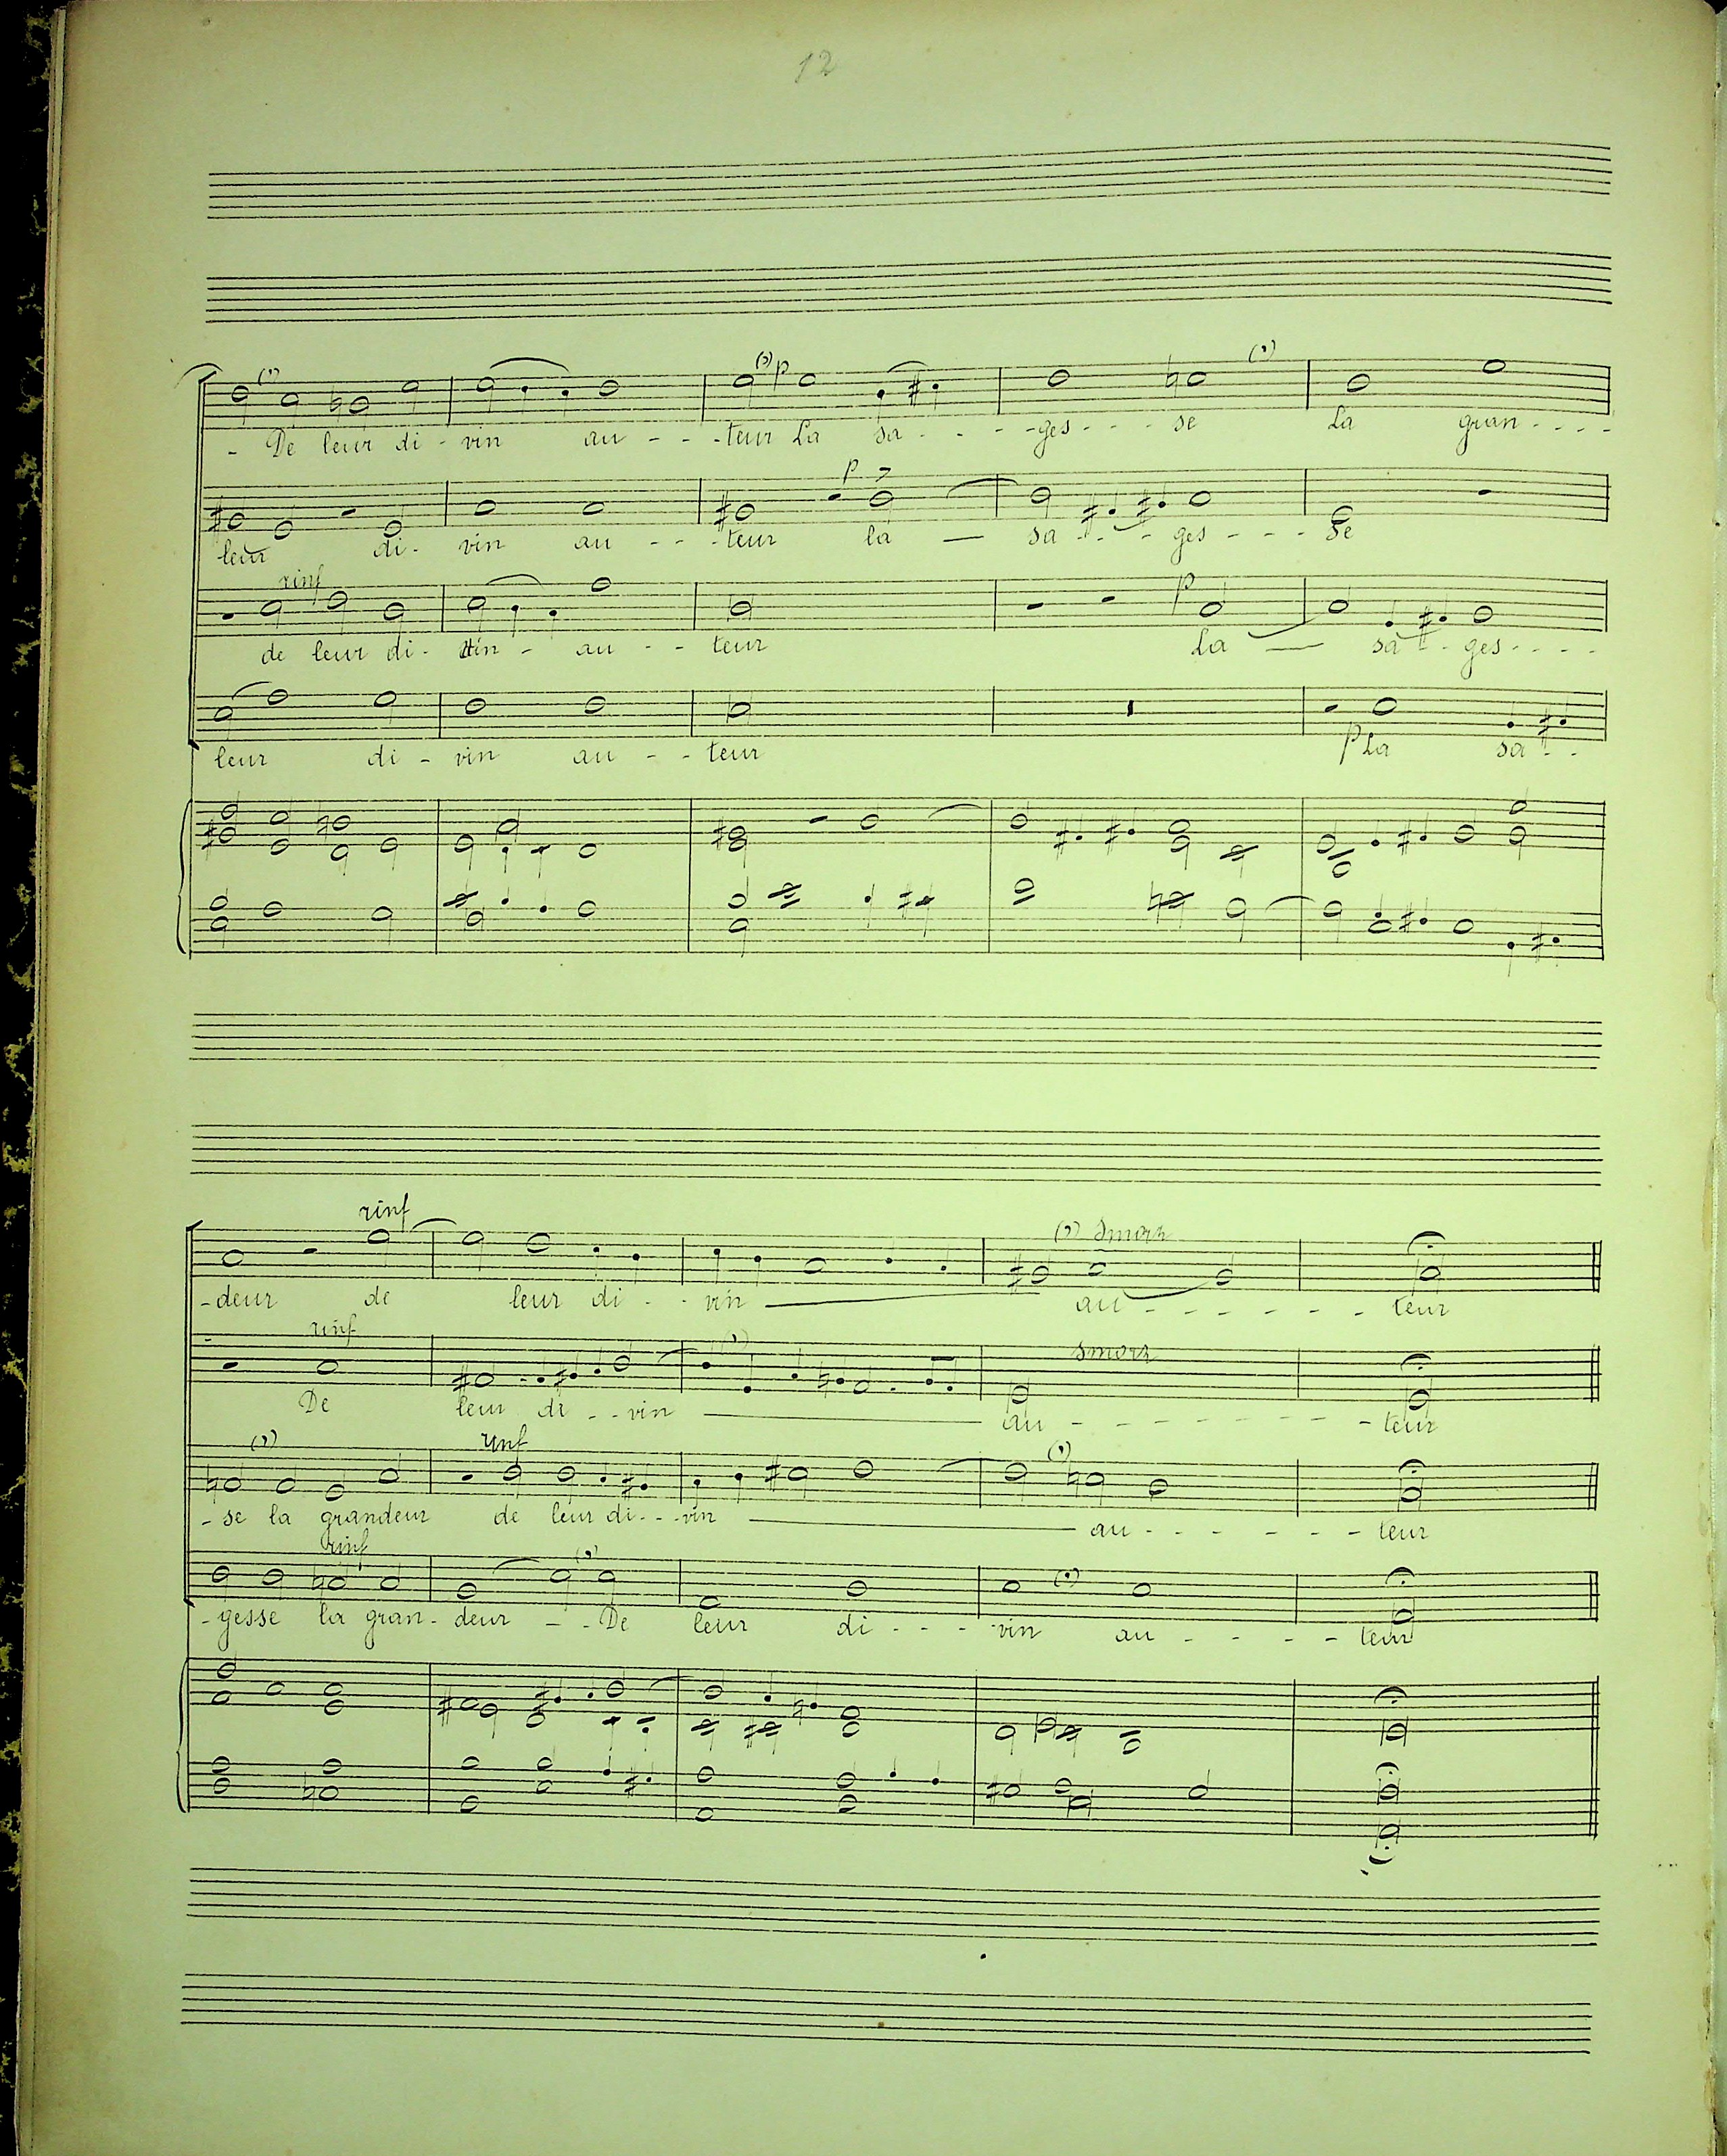 12
(,) (,) p (,)
- De leur di - vin au - - - teur La sa - - - - ges - - - se La gran - - - -
p >
leur di - vin au - - - teur la — sa - - - ges - - - - Se
rinf p
de leur di - vin - au - - - teur La — sa - - ges - - - -
leur di - vin au - - - teur p La sa - -
rinf
- deur de leur di - - vin au - - - - - - teur
(,) Smorz
rinf (,) smorz
De leur di - - vin au - - - - - - - - teur
(,) rinf (,)
- se la grandeur de leur di - - - vin au - - - - - - teur
rinf (,) (,)
- gesse la gran - deur - - De leur di - - - - vin au - - - - teur